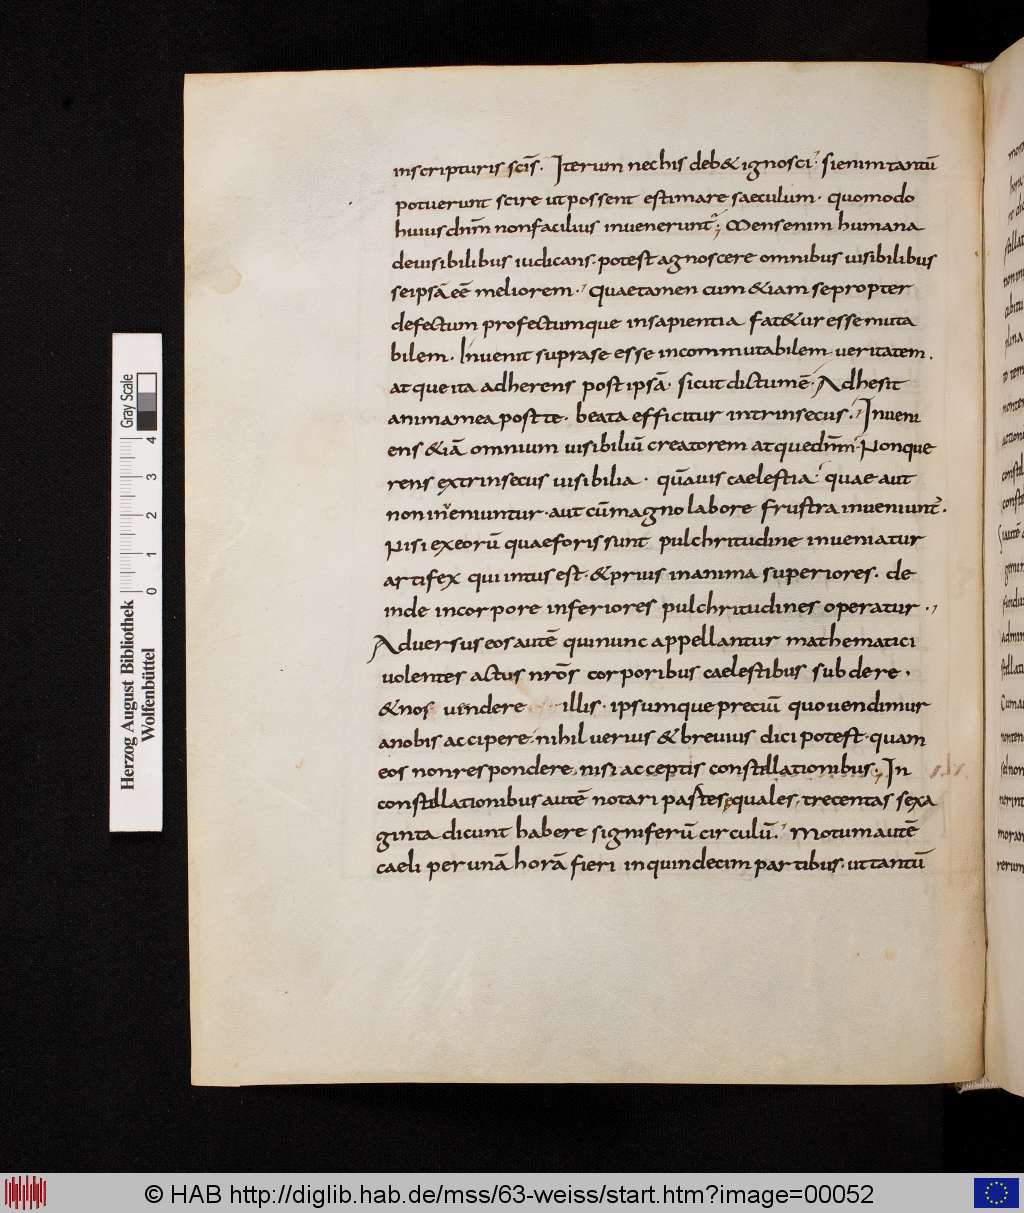 inscripturis scīs. Iterum nec his deb& ignosci. si enim tantū
potuerunt scire ut possent estimare saeculum. quomodo
huius dn̄m non facilius invenerunt; Mens enim humana
de visibilibus iudicans. potest agnoscere omnibus visibilibus
seipsā eē meliorem. Quae tamen cum &iam se propter
defectum profectumque in sapientia fat&ur esse muta
bilem. Invenit supra se esse incommutabilem veritatem.
atque ita adherens post ipsā. sicut dictum ē. Adhesit
anima mea post te. beata efficitur intrinsecus. Inveni
ens &iā omnium visibiliū creatorem atque dn̄m. Nonque
rens extrinsecus visibilia. quāvis caelestia. quae aut
non inveniuntur. aut cū magno labore frustra inveniunt.
Nisi ex eorū quae foris sunt pulchritudine inveniatur
artifex qui intus est. & prius in anima superiores. de
inde in corpore inferiores pulchritudines operatur.
Adversus eos autē qui nunc appellantur mathematici
volentes actus nrōs corporibus caelestibus subdere.
& nos vendere illis. ipsumque preciū quo vendimur
a nobis accipere. nihil verius & brevius dici potest. quam
eos non respondere. nisi acceptis constellationibus; In
constellationibus autē notari partes. quales. trecentas sexa
ginta dicunt habere signiferū circulū. Motum autē
caeli per unā horā fieri in quindecim partibus. ut tantū
Herzog August Bibliothek
Wolfenbüttel
0 1 2 3 4
Gray Scale
© HAB http://diglib.hab.de/mss/63-weiss/start.htm?image=00052